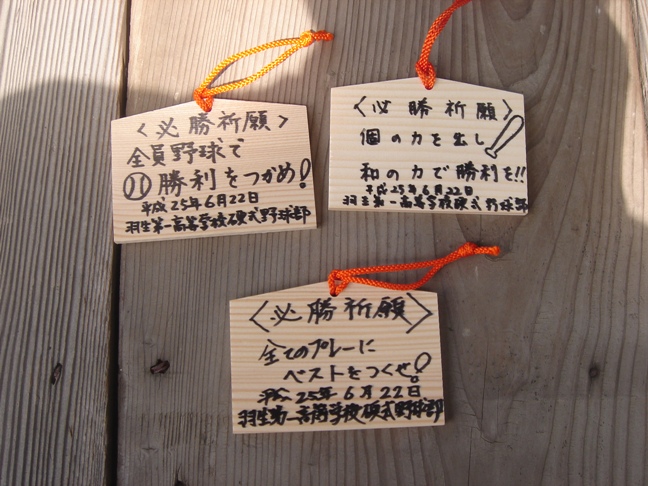 ＜必勝祈願＞
全員野球で
勝利をつかめ！
平成25年6月22日
羽生第一高等学校硬式野球部
＜必勝祈願＞
個の力を出し
和の力で勝利を!!
平成25年6月22日
羽生第一高等学校硬式野球部
＜必勝祈願＞
全てのプレーに
ベストをつくせ！
平成25年6月22日
羽生第一高等学校硬式野球部